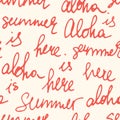 is summer Aloha
summer is
Aloha here. summer
is Aloha
aloha is here
here summer
Summer aloha
is here is